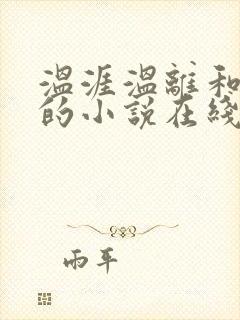 温涯温離和
的小說在綫
雨平